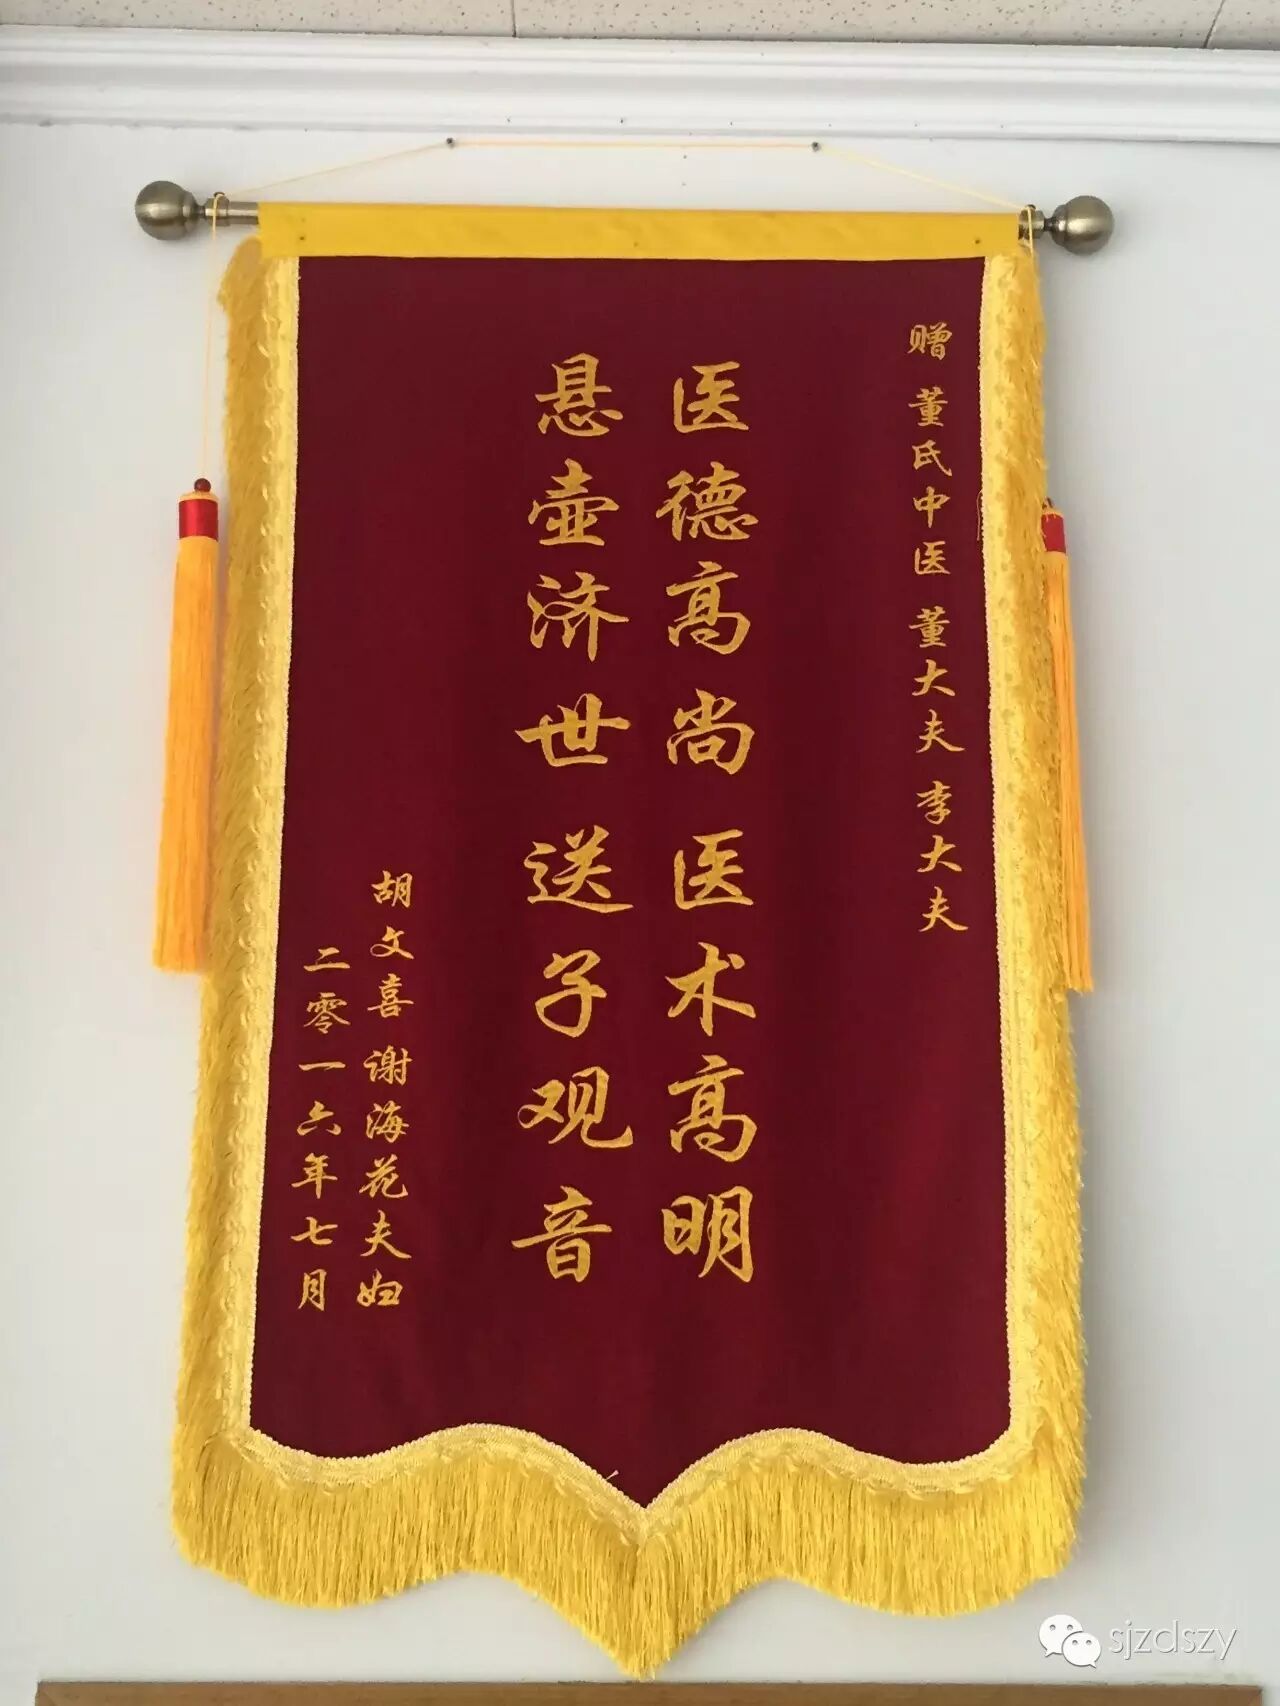 赠 董氏中医 董大夫 李大夫
医德高尚 医术高明
悬壶济世 送子观音
胡文喜 谢海花夫妇
二零一六年七月
sjzdszy